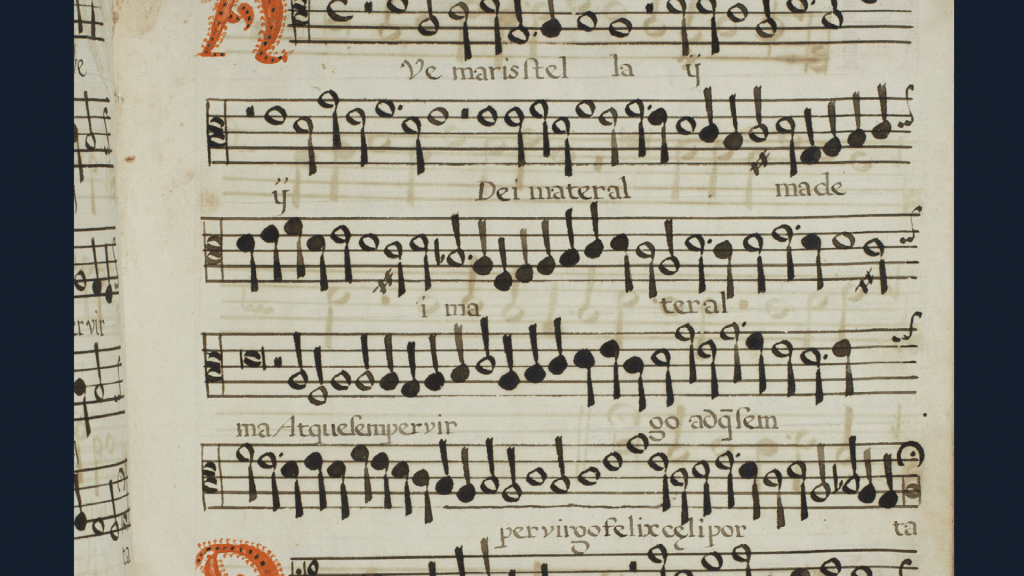 AVe maris stel la ij
ij Dei mater al ma de
i ma ter al
ma Atque semper vir go adq̃ sem
per virgo felix cęli por ta